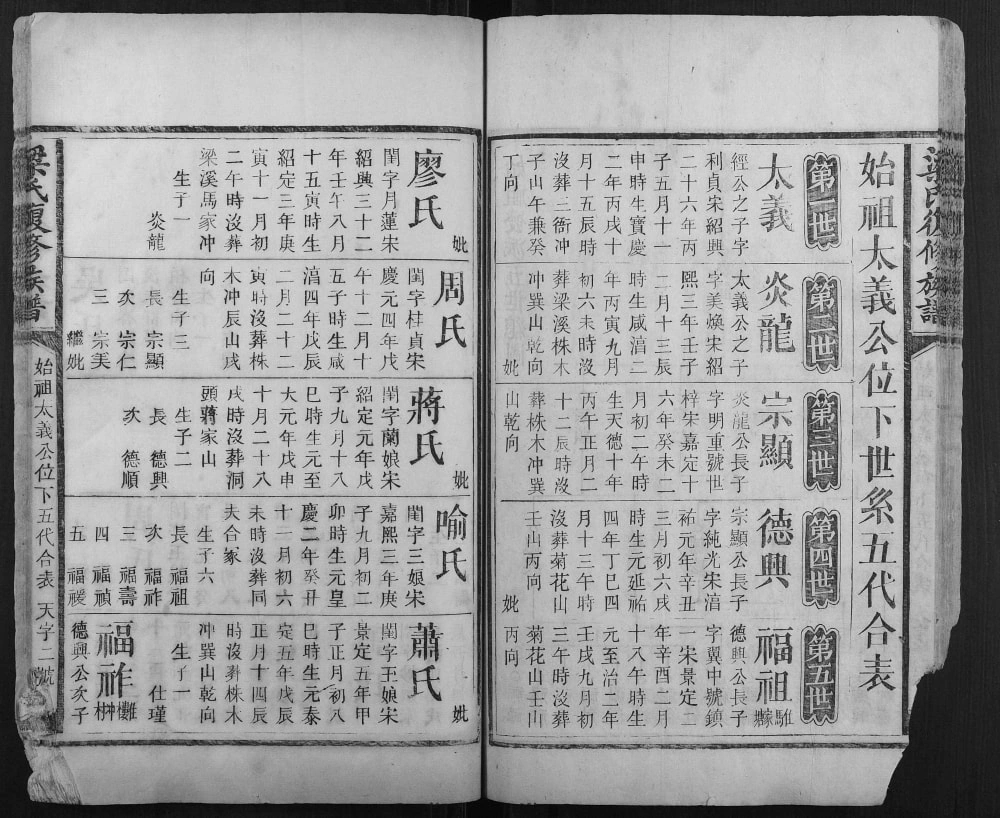 梁氏復修族譜
始祖太義公位下世系五代合表
第一世
太義
經公之子字
利貞宋紹興
二十六年丙
子五月十一
申時生寶慶
二年丙戌十
月十五辰時
沒葬三衙冲
子山午兼癸
丁向
第二世
炎龍
太義公之子
字美煥宋紹
熙三年壬子
二月十三辰
時生咸湻二
年丙寅九月
初六未時沒
葬梁溪株木
冲巽山乾向
妣
第三世
宗顯
炎龍公長子
字明重號世
梓宋嘉定十
六年癸未二
月初二午時
生天德十年
丙午正月二
十二辰時沒
葬株木冲巽
山乾向
第四世
德興
宗顯公長子
字純光宋湻
祐元年辛丑
三月初六戌
時生元延祐
四年丁巳四
月十三午時
沒葬菊花山
壬山丙向
妣
第五世
福祖
德興公長子
字翼中號鎮
一宋景定二
年辛酉二月
十八午時生
元至治二年
壬戌九月初
三午時沒葬
菊花山壬山
丙向
廖氏
妣
閨字月蓮宋
紹興三十二
年壬午八月
十五寅時生
紹定三年庚
寅十一月初
二午時沒葬
梁溪馬家冲
生子一
炎龍
周氏
閨字桂貞宋
慶元四年戊
午十二月十
五子時生咸
湻四年戊辰
二月二十二
寅時沒葬株
木冲辰山戌
向
生子三
長 宗顯
次 宗仁
三 宗美
繼妣
蔣氏
妣
閨字蘭娘宋
紹定元年戊
子九月十八
巳時生元至
大元年戊申
十月二十八
戌時沒葬洞
頭蔣家山
生子二
長 德興
次 德順
喻氏
閨字三娘宋
嘉熙三年庚
子九月初二
卯時生元皇
慶二年癸丑
十一月初六
未時沒葬同
夫合冢
生子六
長 福祖
次 福祚
三 福壽
四 福禎
五 福襚
蕭氏
妣
閨字王娘宋
景定五年甲
子正月初八
巳時生元泰
定五年戊辰
正月十四辰
時沒葬株木
冲巽山乾向
生子一
仕瑾
福祚
德興公次子
梁氏復修族譜
始祖太義公位下五代合表
天字二號